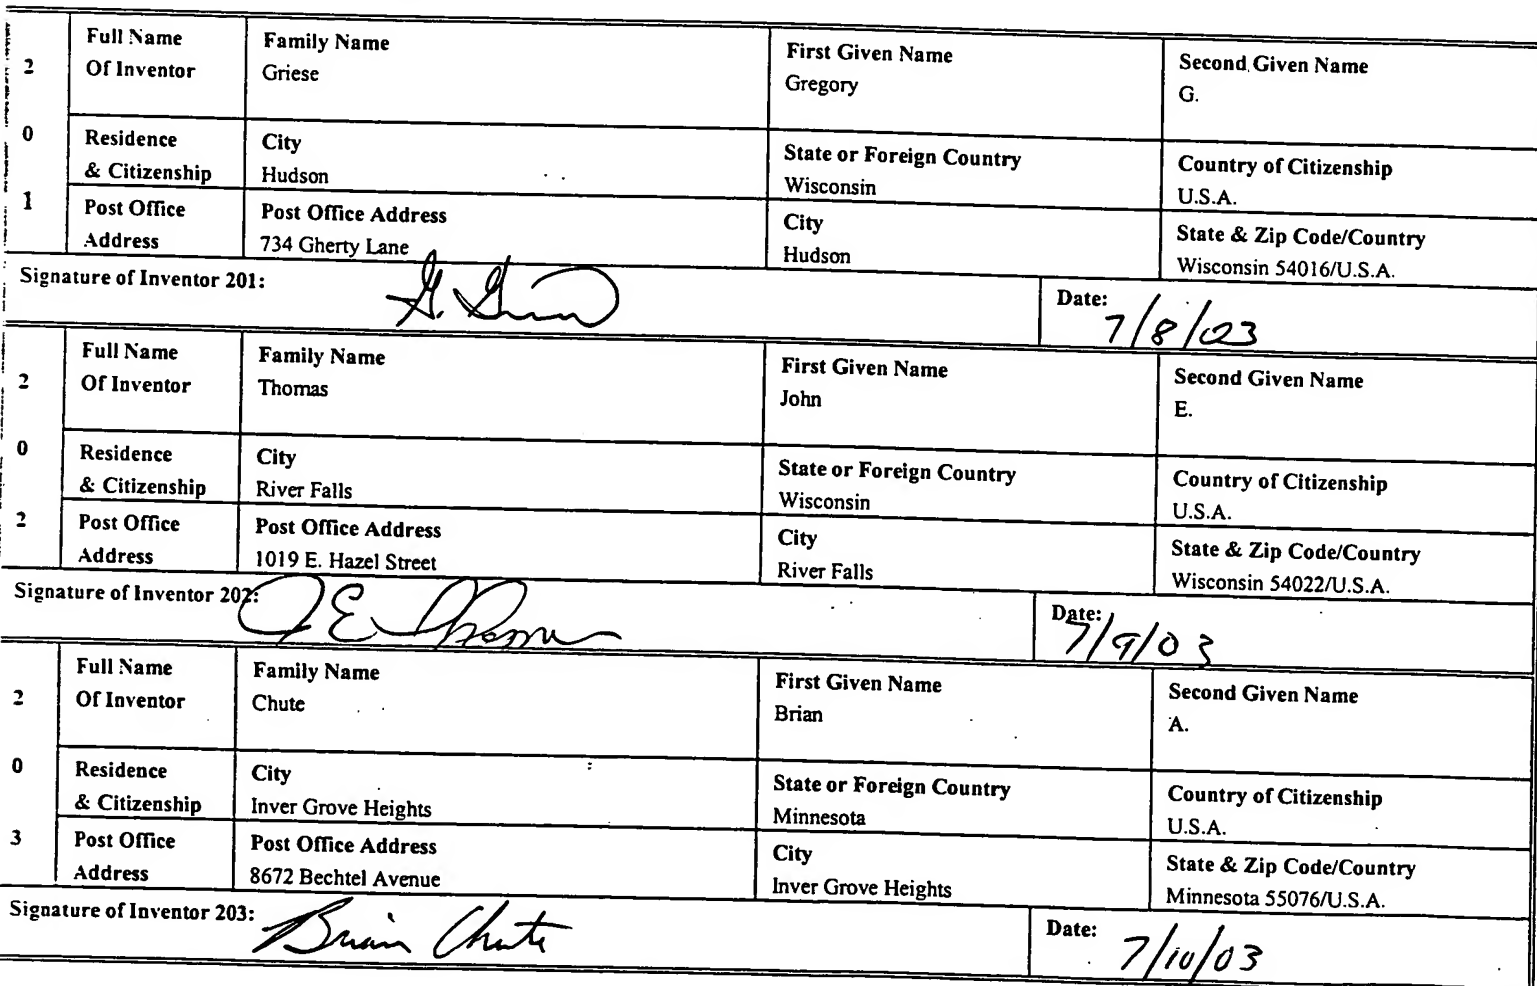 2 0 1
Full Name Of Inventor
Family Name
Griese
First Given Name
Gregory
Second Given Name
G.
Residence & Citizenship
City
Hudson
State or Foreign Country
Wisconsin
Country of Citizenship
U.S.A.
Post Office Address
Post Office Address
734 Gherty Lane
City
Hudson
State & Zip Code/Country
Wisconsin 54016/U.S.A.
Signature of Inventor 201:
Date: 7/8/03
2 0 2
Full Name Of Inventor
Family Name
Thomas
First Given Name
John
Second Given Name
E.
Residence & Citizenship
City
River Falls
State or Foreign Country
Wisconsin
Country of Citizenship
U.S.A.
Post Office Address
Post Office Address
1019 E. Hazel Street
City
River Falls
State & Zip Code/Country
Wisconsin 54022/U.S.A.
Signature of Inventor 202: J E Thomas
Date: 7/9/03
2 0 3
Full Name Of Inventor
Family Name
Chute
First Given Name
Brian
Second Given Name
A.
Residence & Citizenship
City
Inver Grove Heights
State or Foreign Country
Minnesota
Country of Citizenship
U.S.A.
Post Office Address
Post Office Address
8672 Bechtel Avenue
City
Inver Grove Heights
State & Zip Code/Country
Minnesota 55076/U.S.A.
Signature of Inventor 203: Brian Chute
Date: 7/10/03